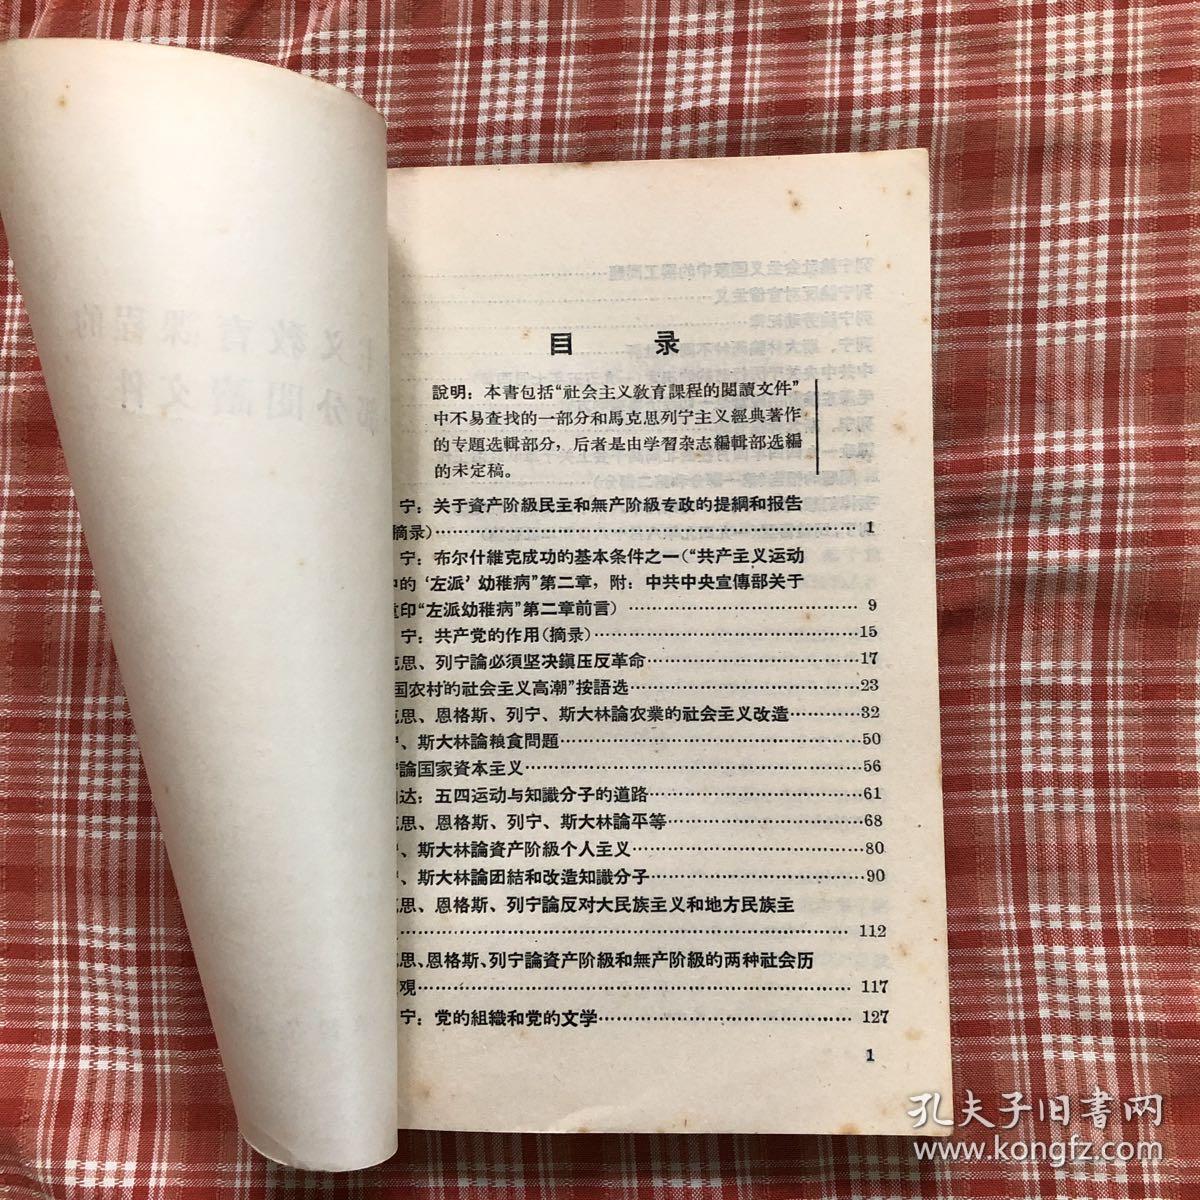 目 录
說明：本書包括“社会主义敎育課程的閱讀文件”
中不易查找的一部分和馬克思列宁主义經典著作
的专題选輯部分，后者是由学習杂志編輯部选編
的未定稿。
宁：关于資产阶級民主和無产阶級专政的提綱和报告
摘录）…………………………………………………… 1
宁：布尔什維克成功的基本条件之一（“共产主义运动
的‘左派’幼稚病”第二章，附：中共中央宣傳部关于
印“左派幼稚病”第二章前言）………………………… 9
宁：共产党的作用（摘录）……………………………15
思、列宁論必須坚决鎭压反革命………………………17
国农村的社会主义高潮”按語选………………………23
思、恩格斯、列宁、斯大林論农業的社会主义改造…………32
、斯大林論粮食問題………………………………50
論国家資本主义……………………………………56
达：五四运动与知識分子的道路………………………61
思、恩格斯、列宁、斯大林論平等………………………68
、斯大林論資产阶級个人主义…………………………80
、斯大林論团結和改造知識分子………………………90
思、恩格斯、列宁論反对大民族主义和地方民族主
…………………………………………………… 112
思、恩格斯、列宁論資产阶級和無产阶級的两种社会历
观…………………………………………………… 117
宁：党的組織和党的文学…………………………… 127
1
孔夫子旧書网
www.kongfz.com